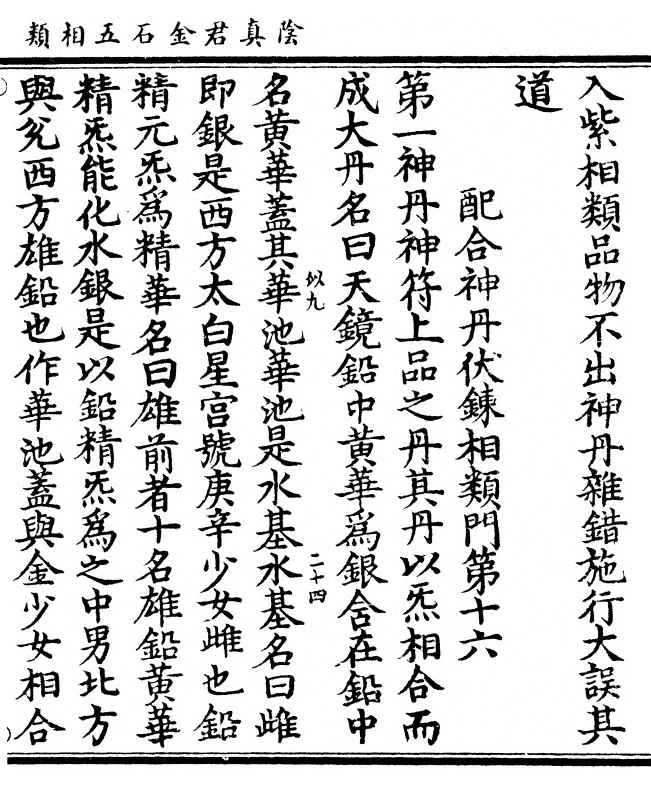 陰真君金石五相類
入紫相類品物不出神丹雜錯施行大誤其
道
配合神丹伏鍊相類門第十六
第一神丹神符上品之丹其丹以炁相合而
成大丹名曰天鏡鉛中黃華爲銀含在鉛中
名黃華蓋其華池華池是水基水基名曰雌
似九
二十四
即銀是西方太白星宮號庚辛少女雌也鉛
精元炁爲精華名曰雄前者十名雄鉛黃華
精炁能化水銀是以鉛精炁爲之中男北方
與兊西方雄鉛也作華池蓋與金少女相合